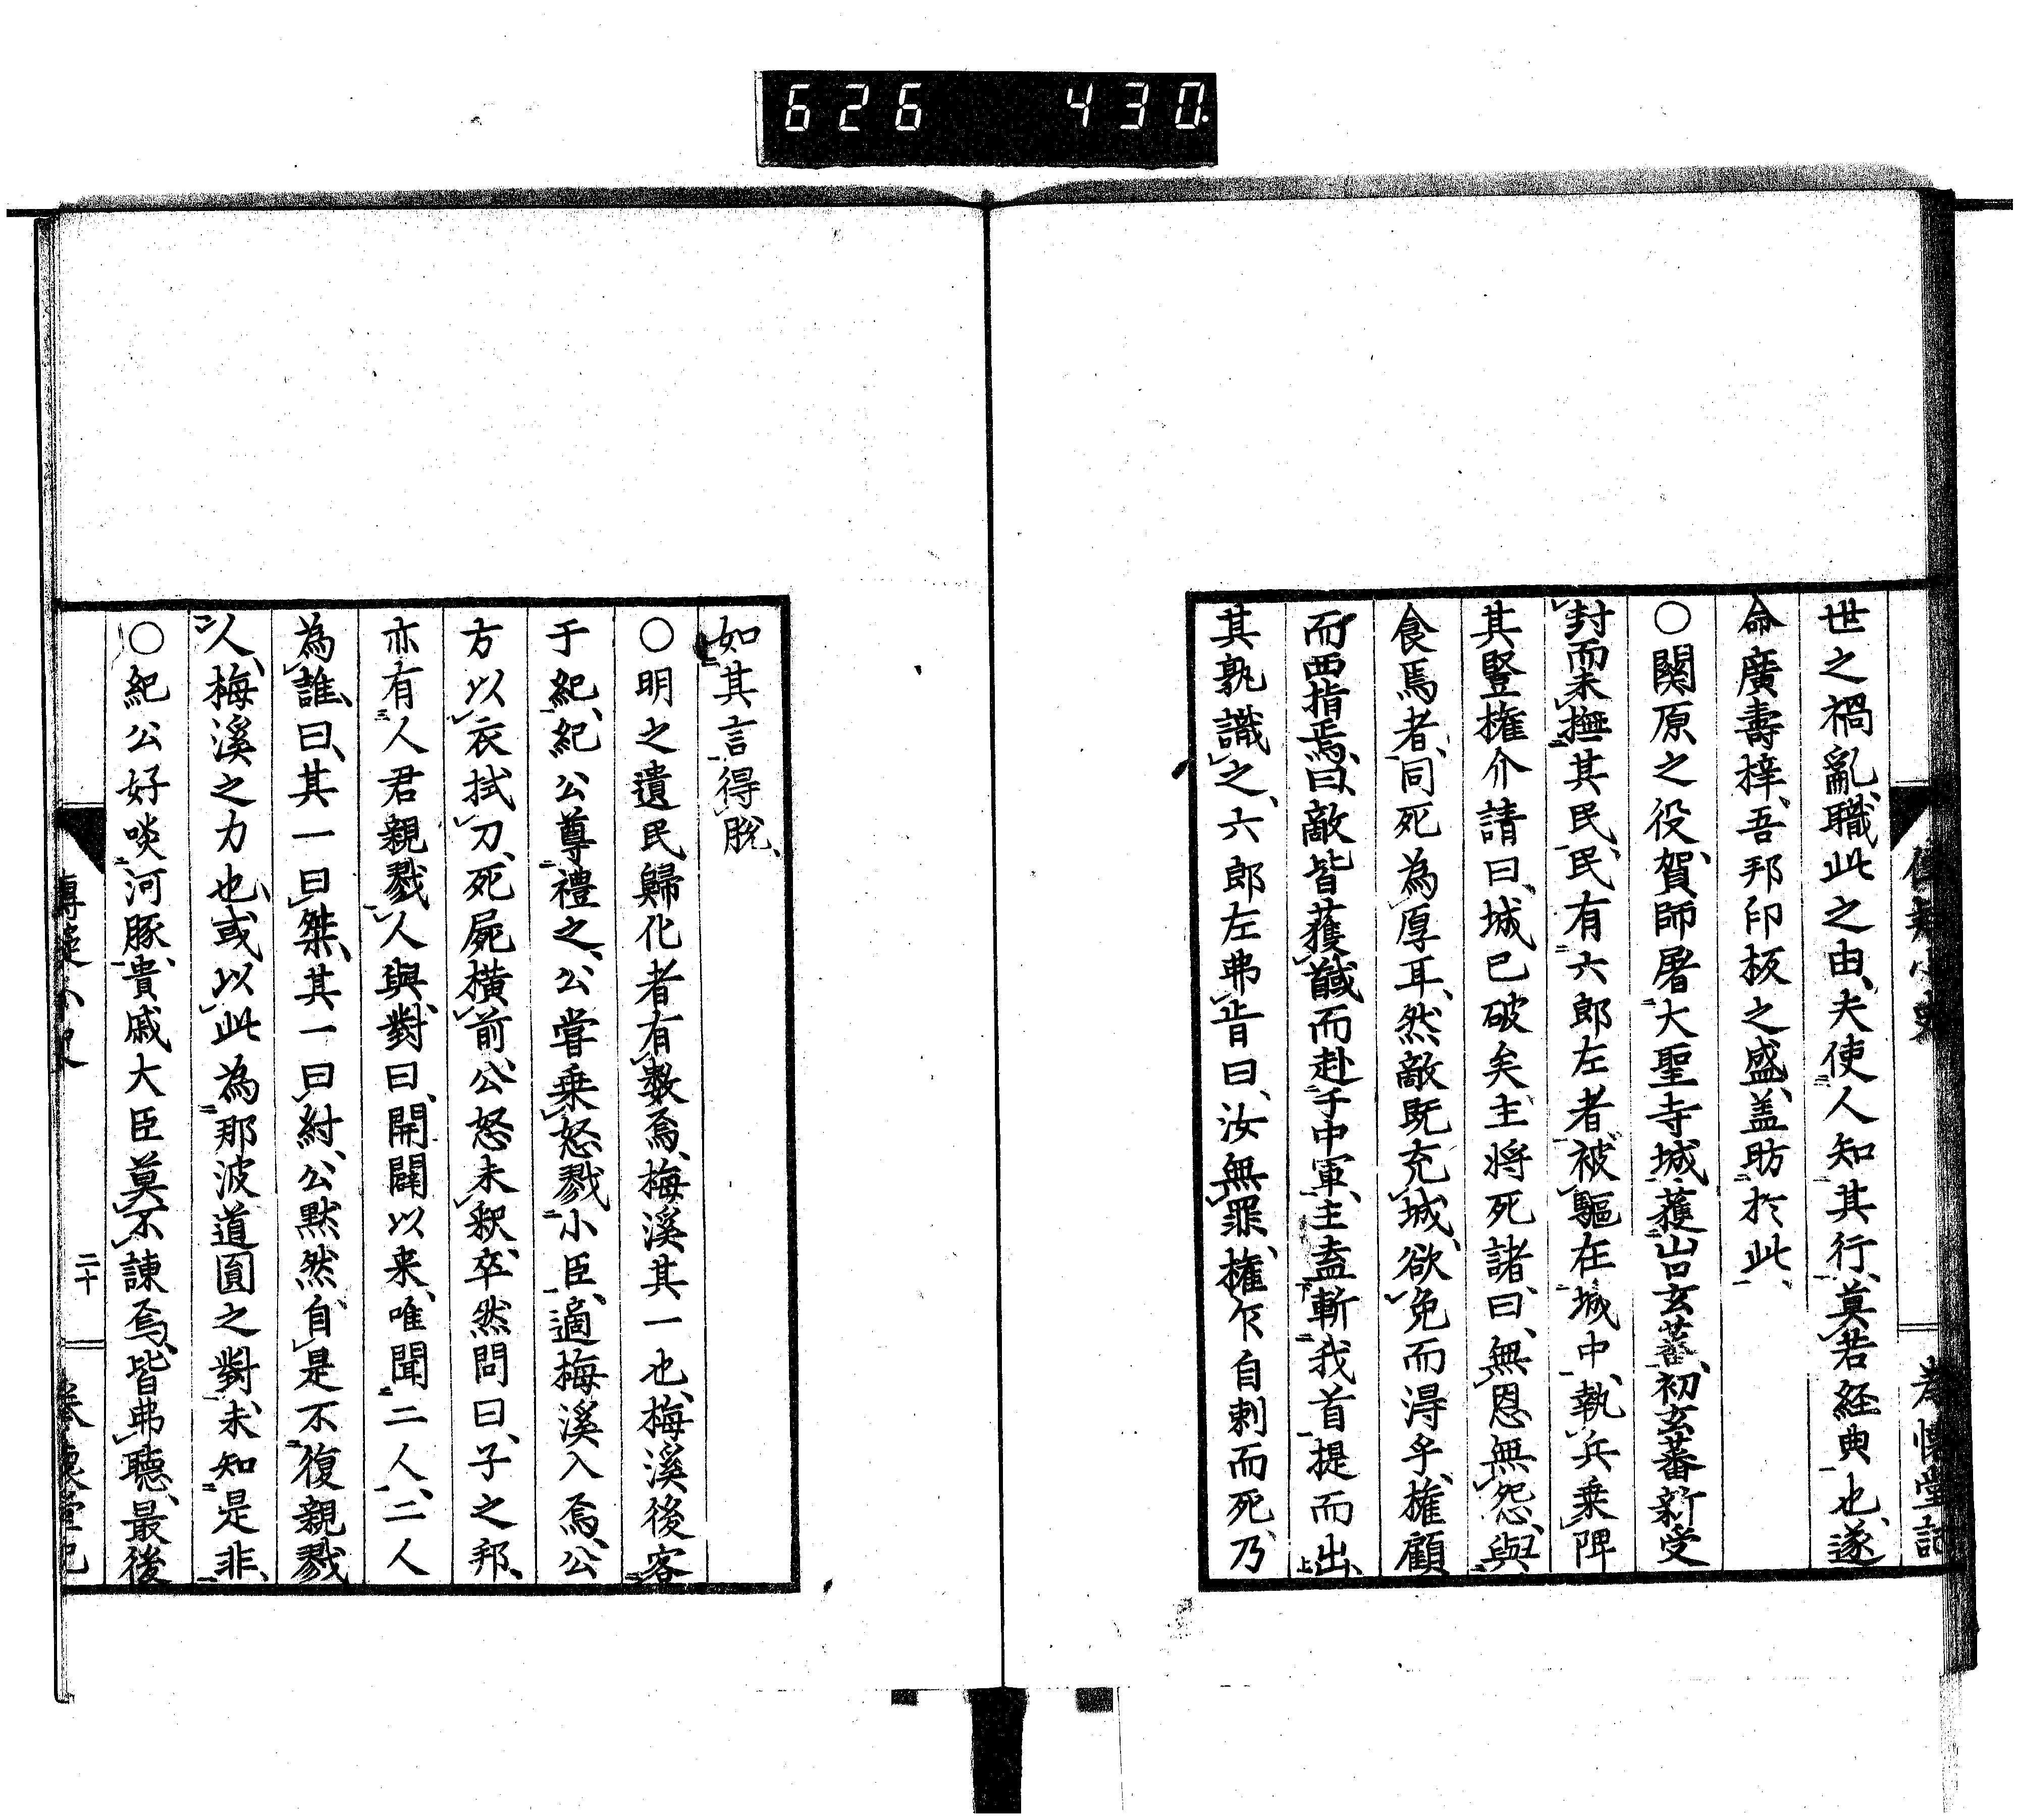 626 430
世之禍亂、職此之由、夫使人知其行、莫若経典也、遂
命廣壽梓、吾邦印板之盛、盖昉於此、
○関原之役、賀師屠大聖寺城、獲山口玄蕃、初玄蕃新受
封而未撫其民、民有六郎左者、被驅在城中、執兵乗陴
其豎権介請曰、城已破矣主将死諸、曰、無恩無怨、與
食焉者、同死為厚耳、然敵既充城、欲免而淂乎、権顧
而西指焉、曰、敵皆獲馘而赴于中軍、主盍斬我首提而出、
其孰識之、六郎左弗肯曰、汝無罪、権乍自刺而死、乃
如其言得脫、
○明之遺民歸化者有數焉、梅溪其一也、梅溪後客
于紀、紀公尊禮之、公甞乗怒戮小臣、適梅溪入焉、公
方以衣拭刀、死屍横前、公怒未釈、卒然問曰、子之邦、
亦有人君親戮人與、對曰、開闢以来、唯聞二人、二人
為誰、曰、其一曰桀、其一曰紂、公黙然、自是不復親戮
人、梅溪之力也、或以此為那波道圓之對、未知是非、
○紀公好啖河豚、貴戚大臣莫不諌焉、皆弗聽、最後
二十